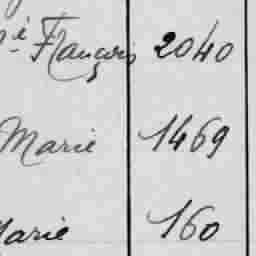 i François 2040
Marie 1469
Marie 160